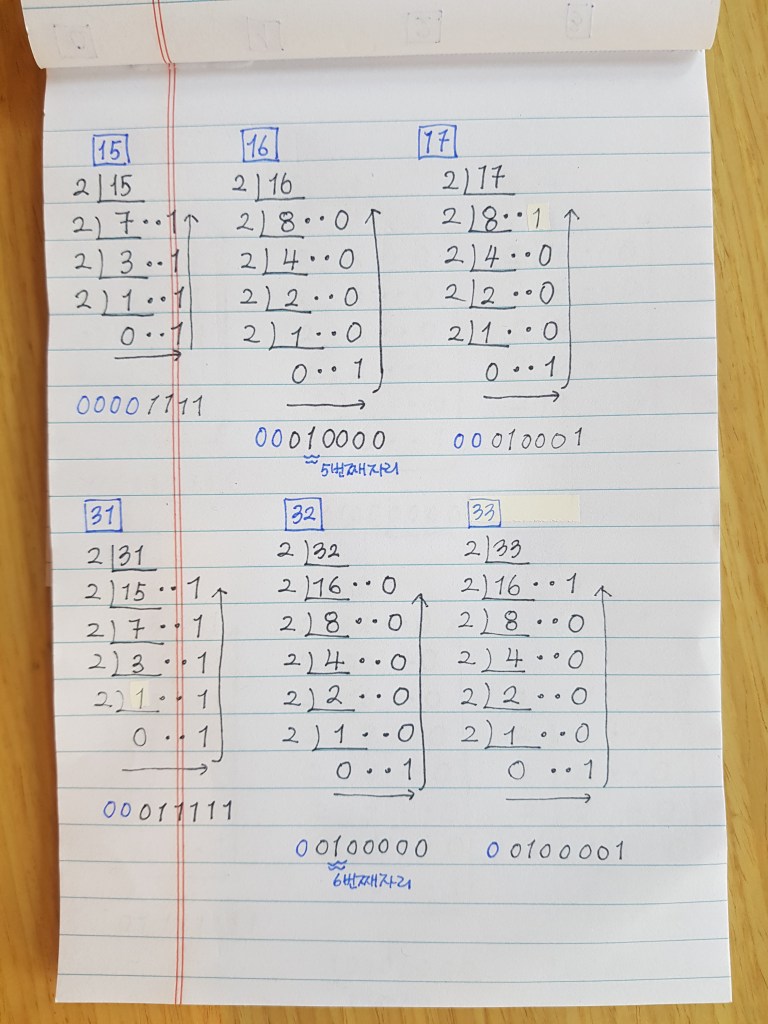 15 16 17
2)15 2)16 2)17
2)7··1 2)8··0 2)8··1
2)3··1 2)4··0 2)4··0
2)1··1 2)2··0 2)2··0
0··1 2)1··0 2)1··0
0··1 0··1
00001111
00010000 00010001
5번째자리
31 32 33
2)31 2)32 2)33
2)15··1 2)16··0 2)16··1
2)7··1 2)8··0 2)8··0
2)3··1 2)4··0 2)4··0
2)1··1 2)2··0 2)2··0
0··1 2)1··0 2)1··0
0··1 0··1
00011111
00100000 00100001
6번째자리